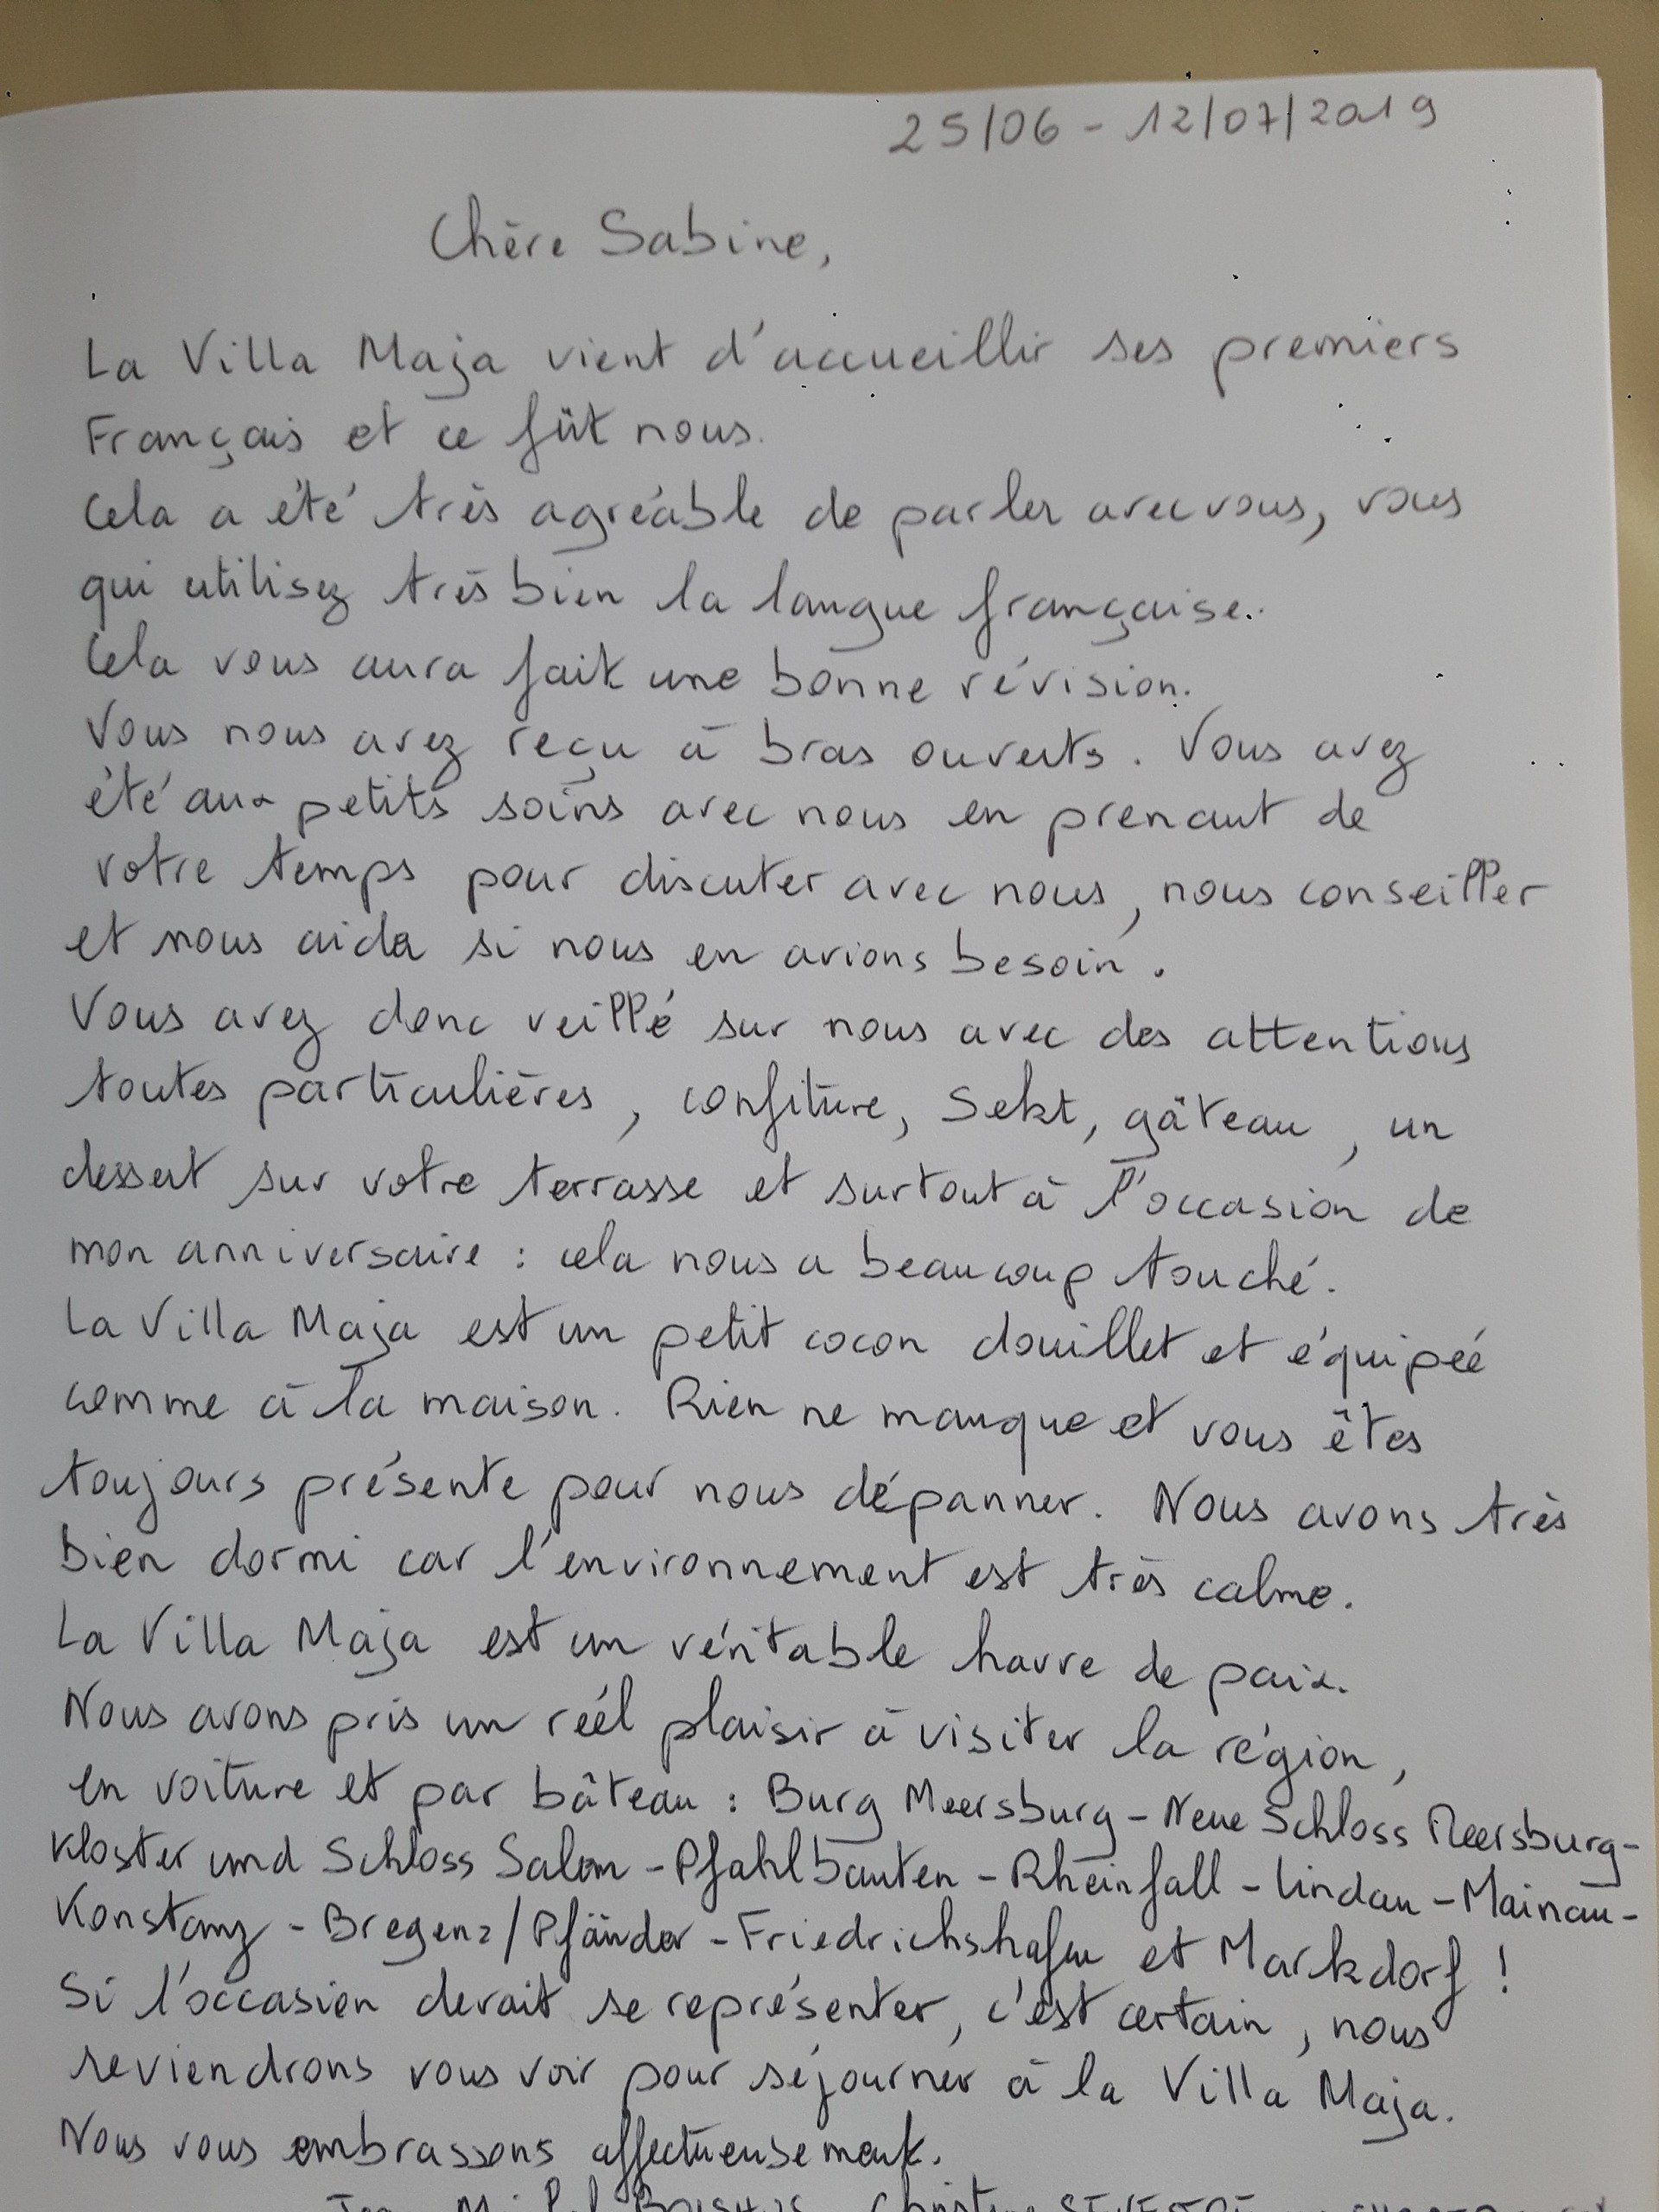 25/06 - 12/07/2019
Chère Sabine,
La Villa Maja vient d'accueillir ses premiers
Français et ce fût nous.
Cela a été très agréable de parler avec vous, vous
qui utilisez très bien la langue française.
Cela vous aura fait une bonne révision.
Vous nous avez reçu à bras ouverts. Vous avez
été aux petits soins avec nous en prenant de
votre temps pour discuter avec nous, nous conseiller
et nous aider si nous en avions besoin.
Vous avez donc veillé sur nous avec des attentions
toutes particulières, confiture, Sekt, gâteau, un
dessert sur votre terrasse et surtout à l'occasion de
mon anniversaire : cela nous a beaucoup touché.
La Villa Maja est un petit cocon douillet et équipée
comme à la maison. Rien ne manque et vous êtes
toujours présente pour nous dépanner. Nous avons très
bien dormi car l'environnement est très calme.
La Villa Maja est un véritable havre de paix.
Nous avons pris un réél plaisir à visiter la région,
en voiture et par bâteau : Burg Meersburg - Neue Schloss Meersburg -
Kloster und Schloss Salem - Pfahlbauten - Rheinfall - Lindau - Mainau -
Konstanz - Bregenz / Pfänder - Friedrichshafen et Markdorf !
Si l'occasion devait se représenter, c'est certain, nous
reviendrons vous voir pour séjourner à la Villa Maja.
Nous vous embrassons affectueusement.